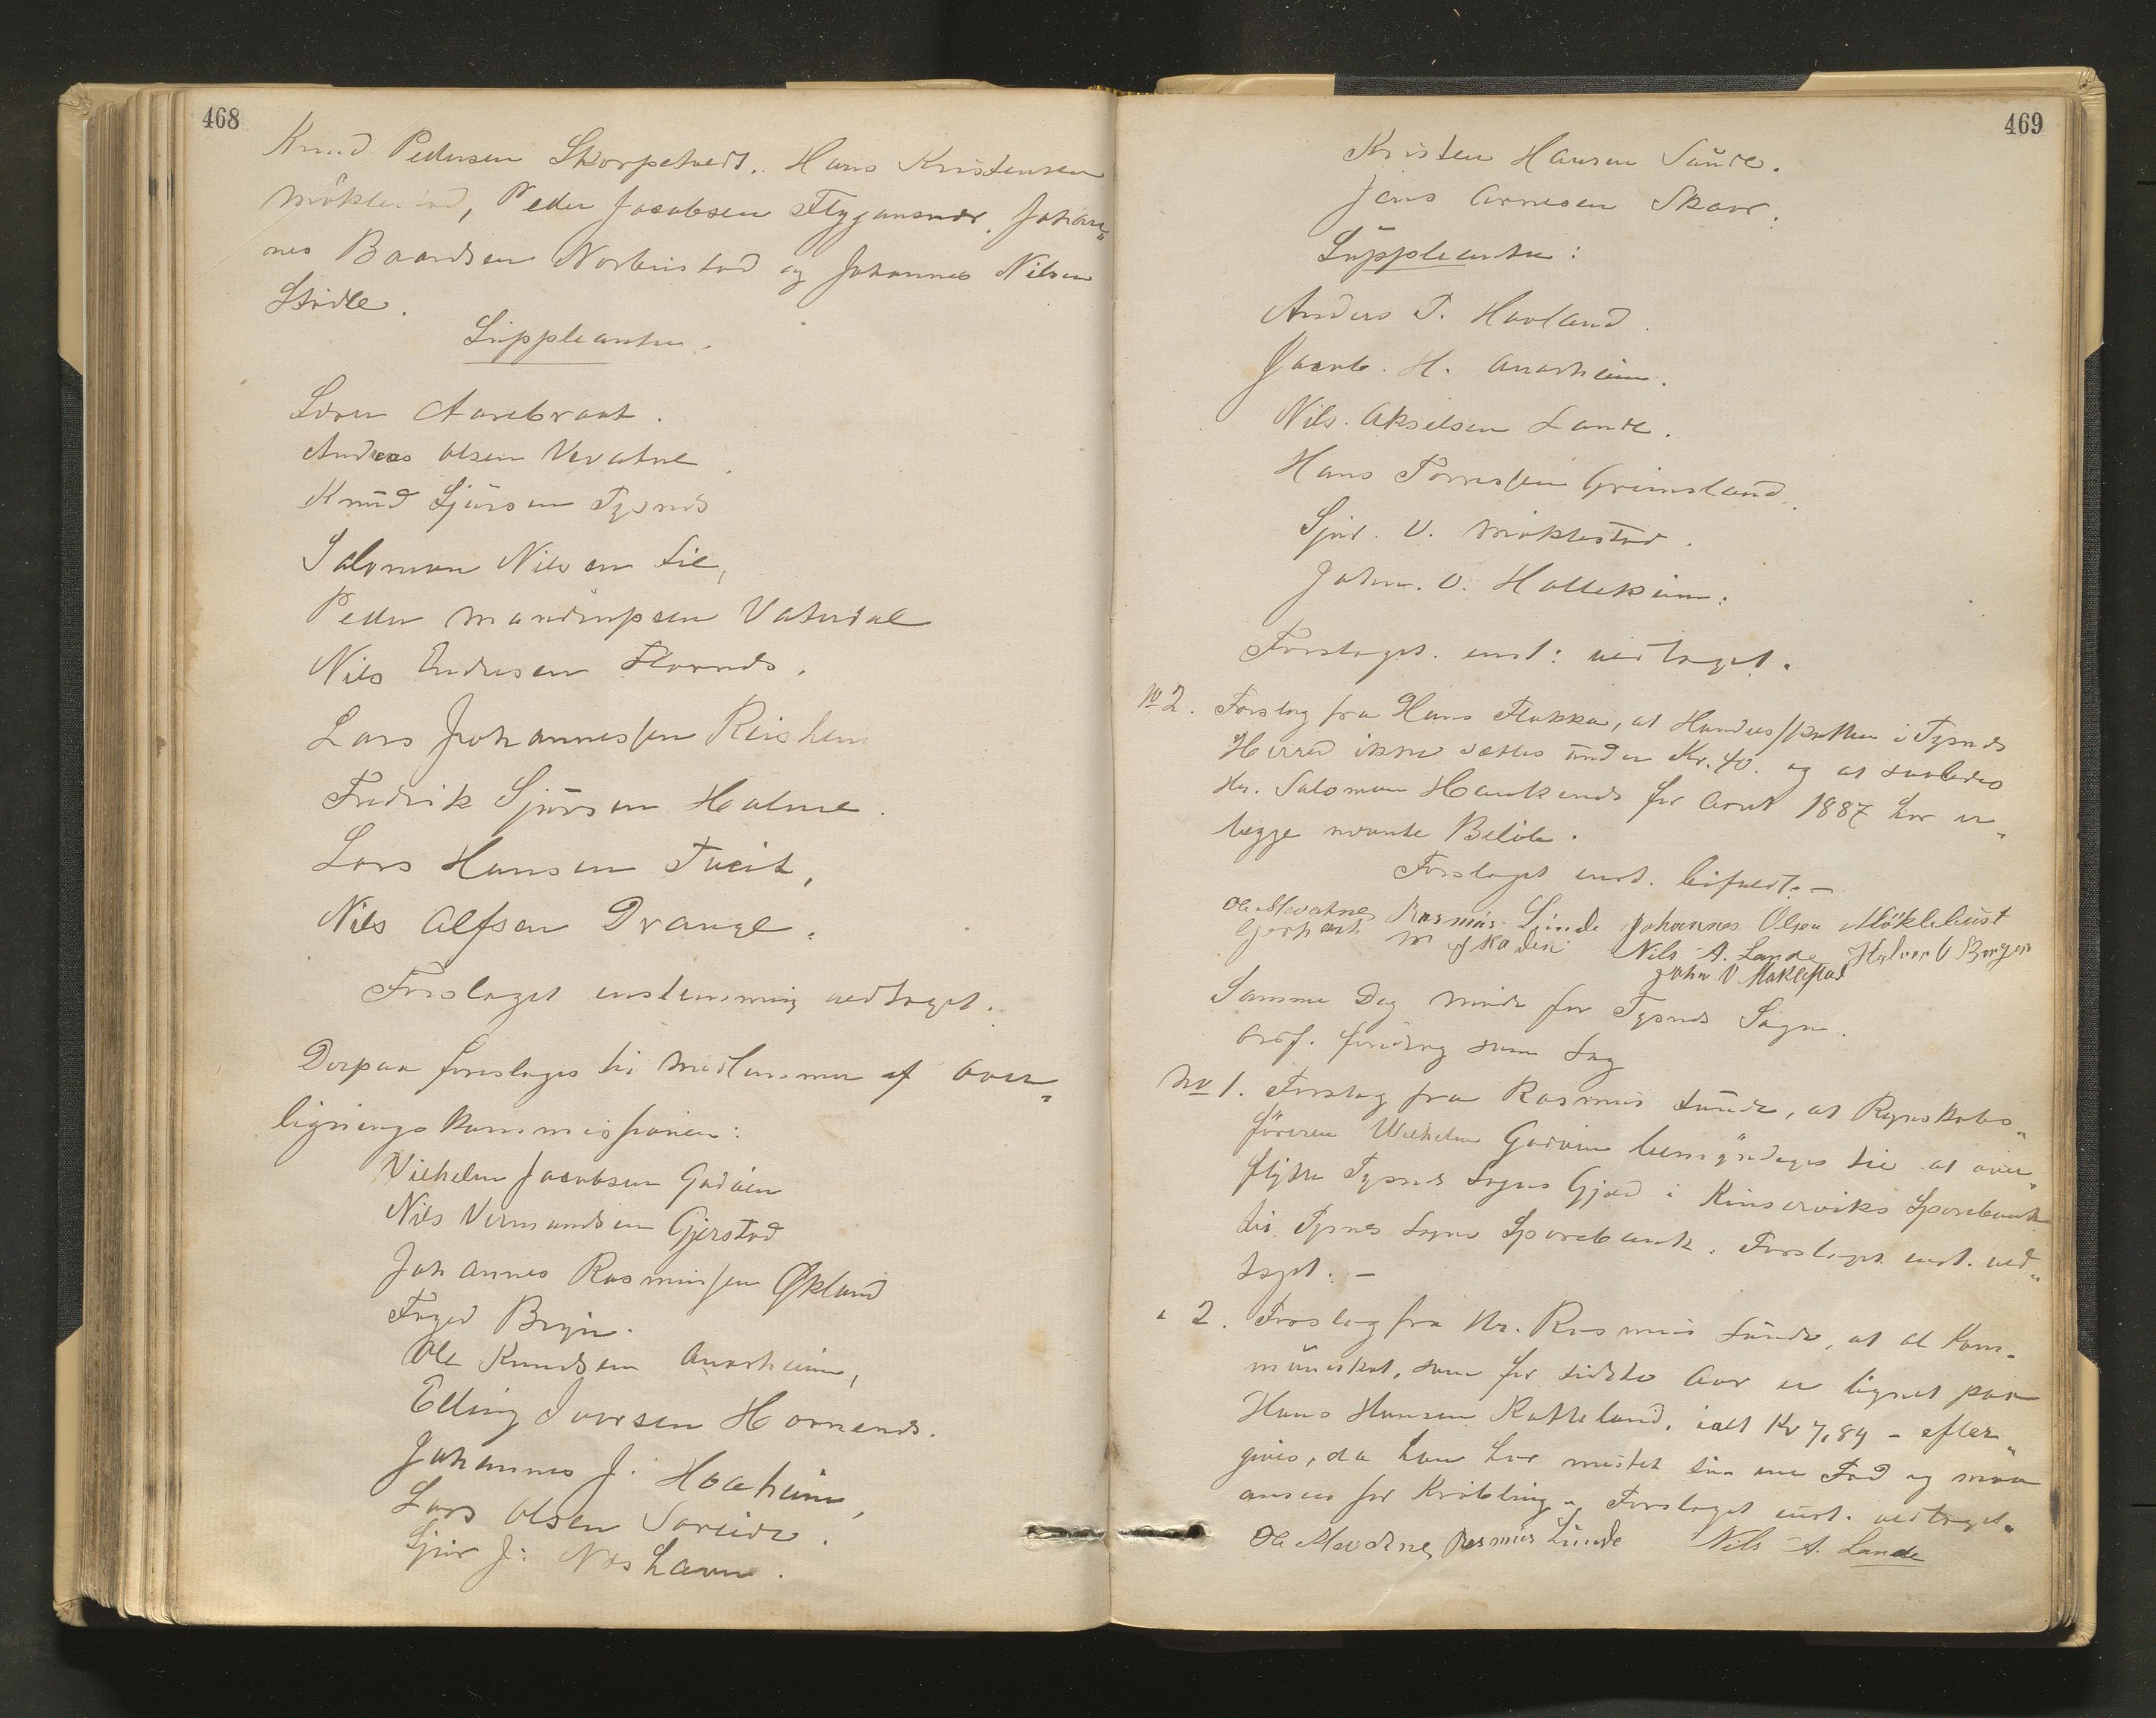 468
Knud Pedersen Skorpetvedt. Hans Kristensen
Möklestad, Peder Jacobsen Flygansvær. Johan„
nes Baardsen Norbustad og Johannes Nilsen
Stödle.
Suppleanter.
Sören Aarebrot.
Andreas Olsen Vevatne.
Knud Sjursen Tysnes
Salomon Nilsen Lie,
Peder Mandrupsen Vatndal
Nils Endresen Flornes.
Lars Johannessen Reisheim
Fredrik Sjursen Holme.
Lars Hansen Tveit,
Nils Alfsen Drange.
Forslaget enstemmig vedtaget.
Derpaa foresloges til Medlemmer af Over„
ligningskommissionen:
Vilhelm Jacobsen Godöen
Nils Vermundsen Gjerstad
Johannes Rasmussen Økland
Foged Bryn.
Ole Knudsen Anarheim,
Elling Iversen Hornenes.
Johannes J. Hoaheim,
Lars Olsen Soreide.
Sjur J. Neshavn.
469
Kristen Hansen Sunde.
Jens Arnesen Skaar.
Suppleanter:
Anders T. Hovland.
Jacob H. Anarheim.
Nils Akselsen Lande.
Hans Torressen Grimsland.
Sjur V. Möklestad.
Johs. O. Hollekim.
Forslaget enst: vedtaget.
No 2. Forslag fra Hans Flakka, at Handelsskatten i Tysnes
Herred ikke sættes under Kr. 40. og at saaledes
Hr. Salomon Haukenes for Aaret 1887 bör er„
lægge nævnte Belöb.
Forslaget enst. bifaldt. —
Ole Mevatne Rasmus Sunde Johannes Olsen Möklebust
Gerhard M Nils A. Lande Halvor O
John V Maklestad
Samme Dag Möde for Tysnes Sogn.
Ordf. foredrog som Sag
No 1. Forslag fra Rasmus Sunde, at Regnskabs„
föreren Vilhelm Godöen bemyndiges til at over„
flytte Tysnes Sogns Gjæld i Kinserviks Sparebank
til Tysnes Sogns Sparebank. Forslaget enst. ved„
taget. —
" 2. Forslag fra Hr. Rasmus Sunde, at al Kom-
muneskat, som for sidste Aar er lignet paa
Hans Hansen Ratteland, ialt Kr 7,89 - efter„
gives, da han har mistet sin ene Fod og maa
ansees for Kröbling. Forslaget enst. vedtaget.
Ole Mevatne Rasmus Sunde Nils A. Lande